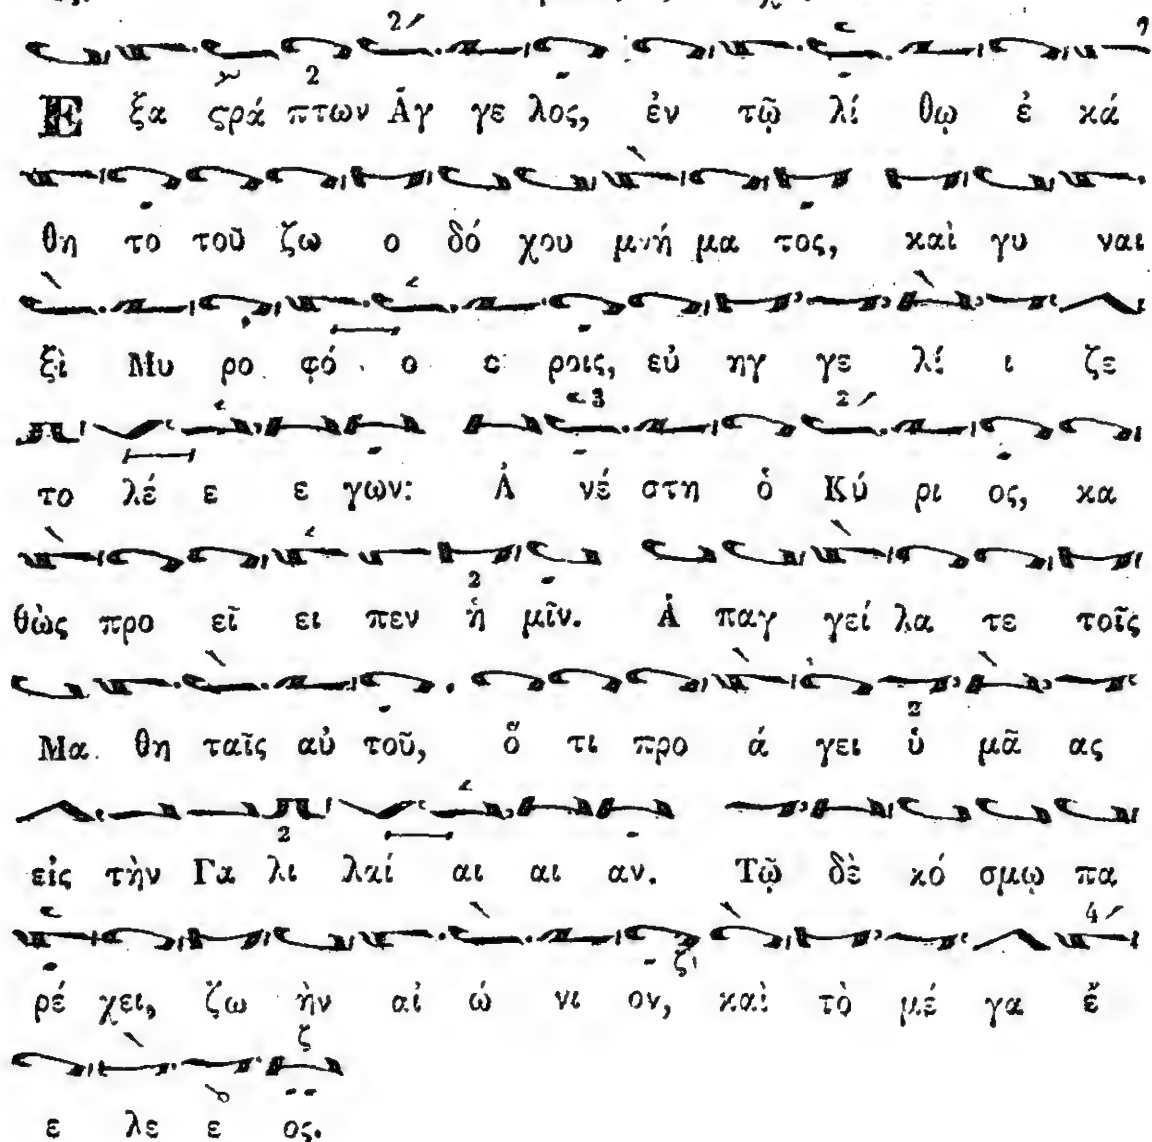 Ε ξα ϛρά πτων Ἄγ γε λος, ἐν τῷ λί θῳ ἐ κά
θη το τοῦ ζω ο δό χου μνή μα τος, καὶ γυ ναι
ξὶ Μυ ρο φό ο ροις, εὐ ηγ γε λί ι ζε
το λέ ε ε γων: Ἀ νέ στη ὁ Κύ ρι ος, κα
θὼς προ εῖ ει πεν ἡ μῖν. Ἀ παγ γεί λα τε τοῖς
Μα θη ταῖς αὐ τοῦ, ὅ τι προ ά γει ὑ μᾶ ας
εἰς τὴν Γα λι λαί αι αι αν. Τῷ δὲ κό σμῳ πα
ρέ χει, ζω ὴν αἰ ώ νι ον, καὶ τὸ μέ γα ἔ
ε λε ε ος.